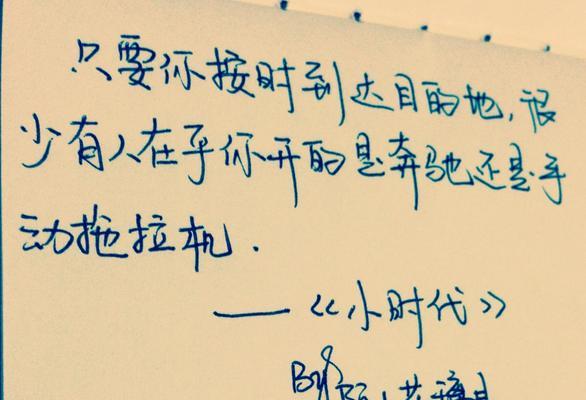 只要你按时到达目的地，很
少有人在乎你开的是奔驰还是手
动拖拉机.
——《小时代》
By